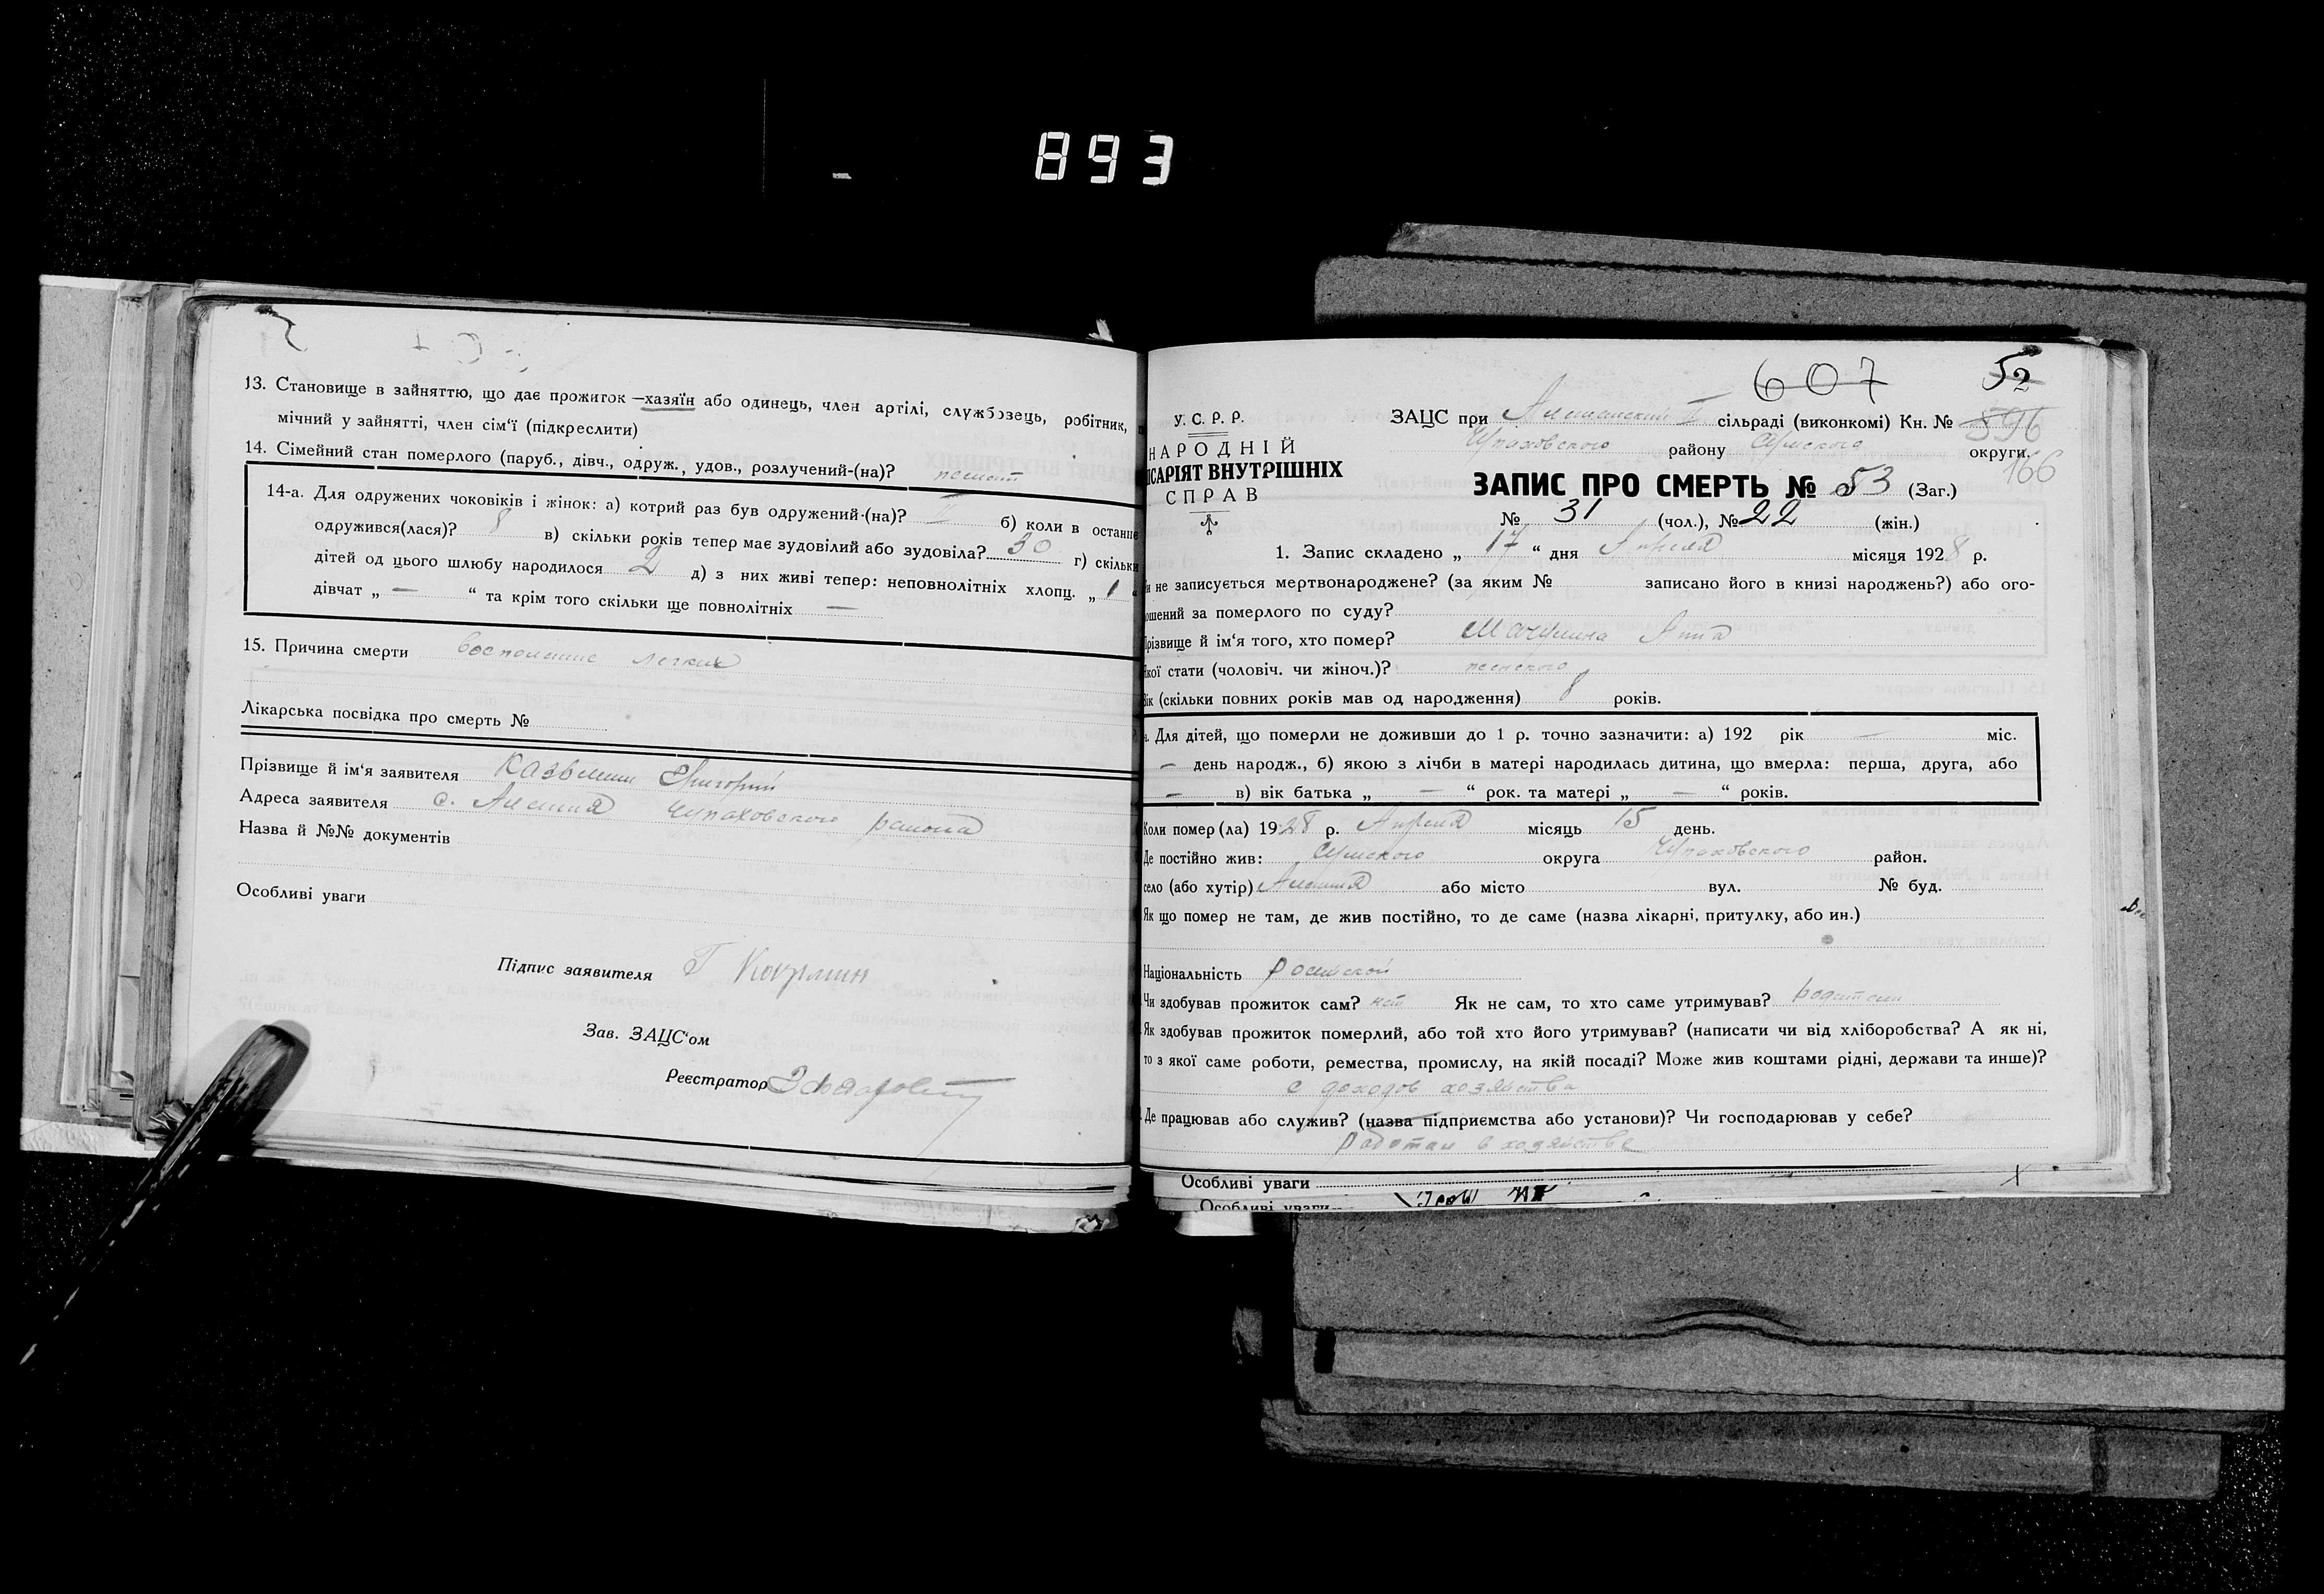 893
13. Становище в зайняттю, що дає прожиток —хазяїн або одинець, член артілі, службовець, робітник,
мічний у зайнятті, член сім'ї (підкреслити)
14. Сімейний стан померлого (паруб., дівч., одруж., удов., розлучений-(на)?
14-а. Для одружених чоковіків і жінок: а) котрий раз був одружений-(на)? II б) коли в останнє
одружився(лася)? 8 в) скільки років тепер має зудовілий або зудовіла? 30 г) скільки
дітей од цього шлюбу народилося 2 д) з них живі тепер: неповнолітніх хлопц. „ 1 "
дівчат „ — " та крім того скільки ще повнолітніх —
15. Причина смерти воспаление легких
Лікарська посвідка про смерть №
Прізвище й ім'я заявителя Григорий
Адреса заявителя с. Алешня Чупаховского района
Назва й №№ документів
Особливі уваги
Підпис заявителя Г
Зав. ЗАЦС'ом
Реєстратор
607
52
У. С. Р. Р.
НАРОДНІЙ
ІСАРІЯТ ВНУТРІШНІХ
СПРАВ
ЗАЦС при Алешанский II сільраді (виконкомі) Кн. № 596
Чупаховского району Сумского округи.
166
ЗАПИС ПРО СМЕРТЬ № 53 (Заг.)
№ 31 (чол.), № 22 (жін.)
1. Запис складено „ 17 " дня Апреля місяця 1928 р.
и не записується мертвонароджене? (за яким № записано його в книзі народжень?) або ого-
ошений за померлого по суду?
різвище й ім'я того, хто помер? Анна
кої стати (чоловіч. чи жіноч.)? женского
ік (скільки повних років мав од народження) 8 років.
а. Для дітей, що померли не доживши до 1 р. точно зазначити: а) 192 рік — міс.
— день народж., б) якою з лічби в матері народилась дитина, що вмерла: перша, друга, або
— в) вік батька „ — " рок. та матері „ — " років.
Коли помер(ла) 1928 р. Апреля місяць 15 день.
Де постійно жив: Сумского округа Чупаховского район.
село (або хутір) Алешня або місто вул. № буд.
Як що помер не там, де жив постійно, то де саме (назва лікарні, притулку, або ин.)
Національність
Чи здобував прожиток сам? нет Як не сам, то хто саме утримував? родители
Як здобував прожиток померлий, або той хто його утримував? (написати чи від хліборобства? А як ні,
то з якої саме роботи, ремества, промислу, на якій посаді? Може жив коштами рідні, держави та инше)?
с доходов хозяйства
Де працював або служив? (назва підприємства або установи)? Чи господарював у себе?
работал в хозяйстве
Особливі уваги
Особливі уваги